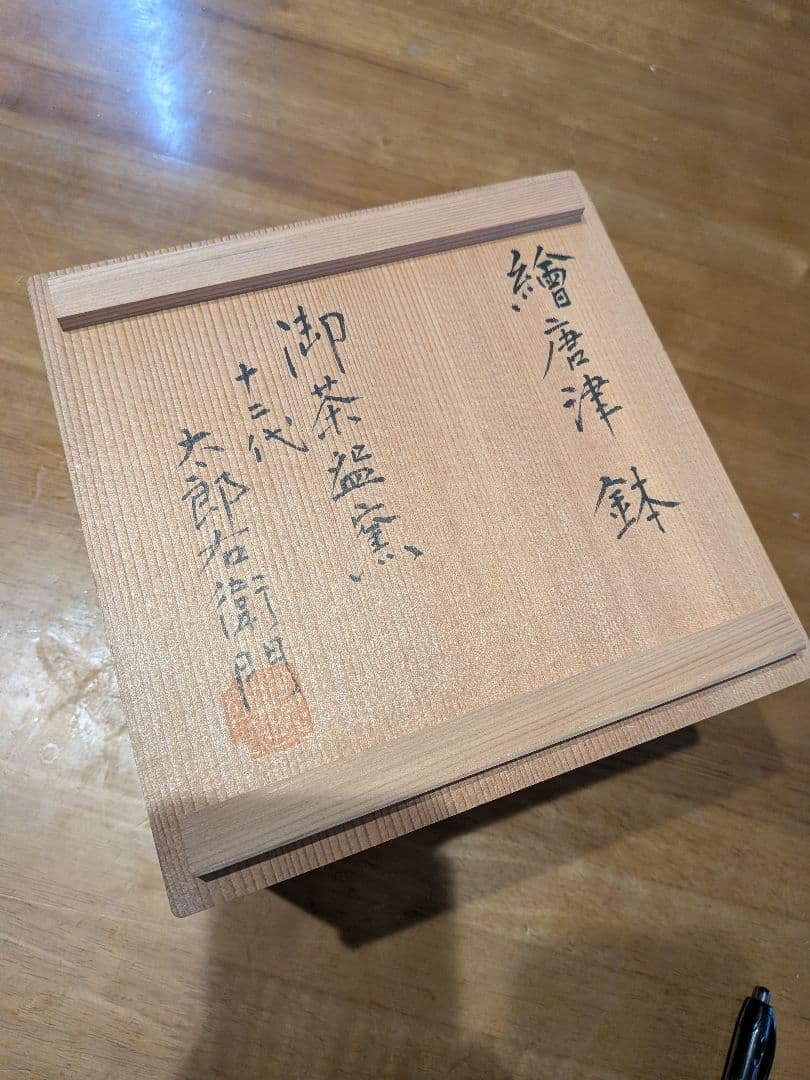 繪唐津 鉢
御茶盌窯
十二代
太郎右衛門